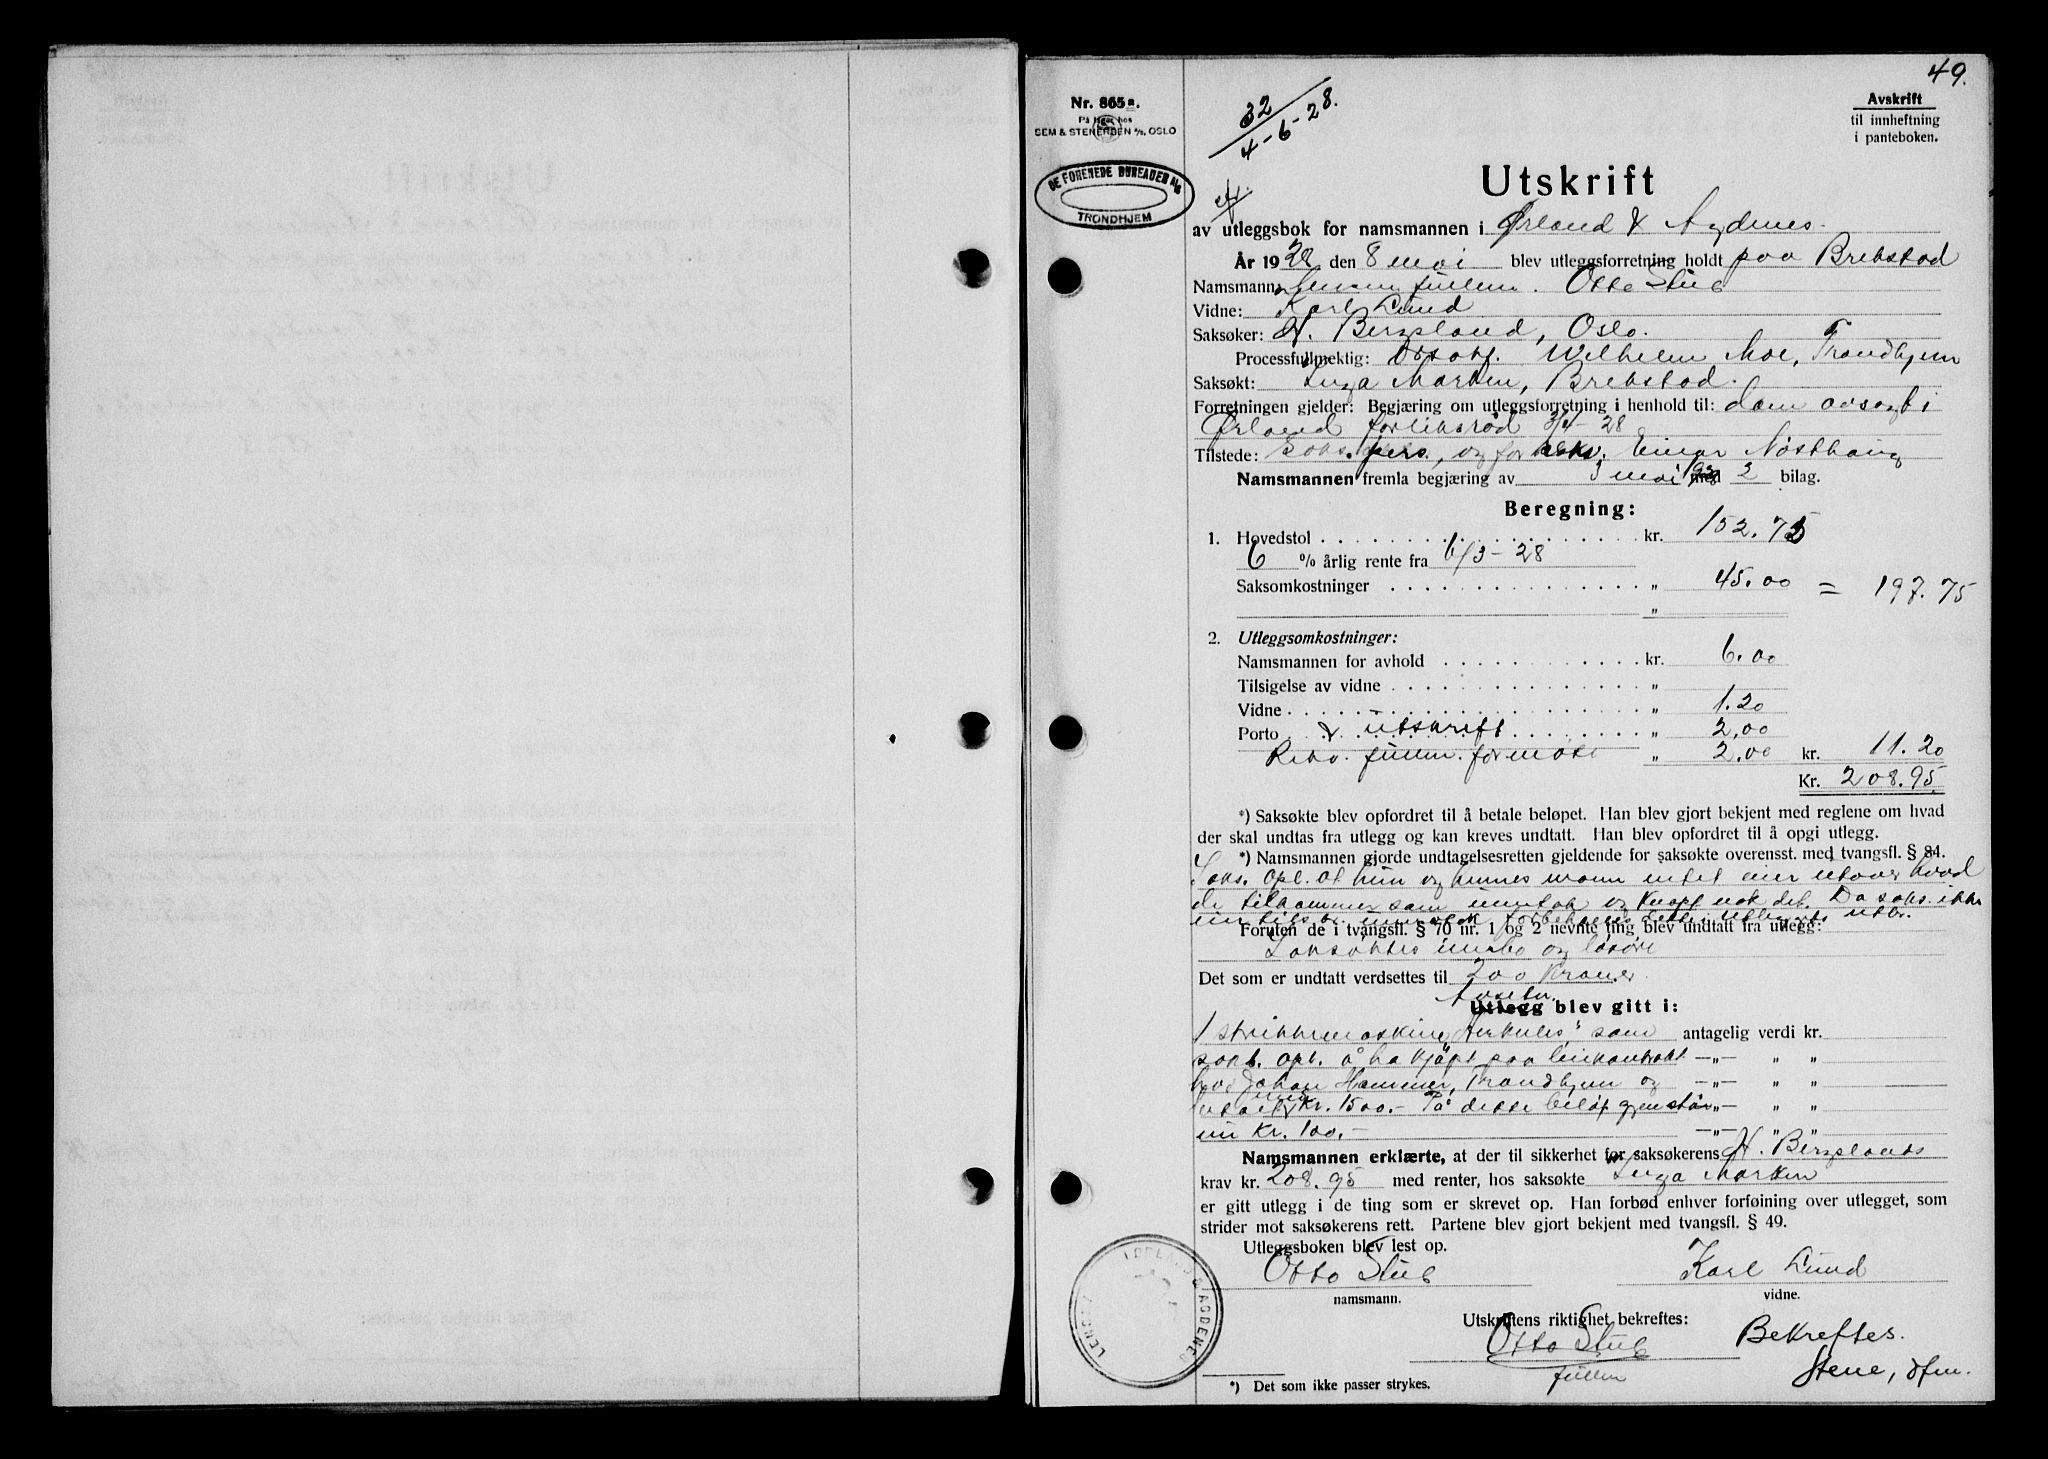 49.
Nr. 865a.
På lager hos
SEM & STENERSEN A/S, OSLO
32
4-6-28.
Avskrift
til innheftning
i panteboken.
DE FORENEDE BUREAUER A/S
TRONDHJEM
Utskrift
av utleggsbok for namsmannen i Ørland & Agdenes.
År 1928 den 8 mai blev utleggsforretning holdt paa Brekstad
Namsmann: fullm. Otto Stub
Vidne: Karl Lund
Saksøker: H. Bergsland, Oslo.
Processfullmektig: O.r.sakf. Wilhelm Moe, Trondhjem
Saksøkt: Inga Marken, Brekstad.
Forretningen gjelder: Begjæring om utleggsforretning i henhold til: dom avsagt i
Ørland forliksråd 3/4-28
Tilstede: Saks. pers., og for saks. Einar Nøsthaug
Namsmannen fremla begjæring av 3 mai med 2 bilag.
Beregning:
1. Hovedstol kr. 152.75
6 % årlig rente fra 6/3-28
Saksomkostninger „ 45.00 = 197.75
„
2. Utleggsomkostninger:
Namsmannen for avhold kr. 6.00
Tilsigelse av vidne „
Vidne „ 1.20
Porto & utskrift „ 2.00
Rekv. fullm. for møte „ 2.00 kr. 11.20
Kr. 208.95
*) Saksøkte blev opfordret til å betale beløpet. Han blev gjort bekjent med reglene om hvad
der skal undtas fra utlegg og kan kreves undtatt. Han blev opfordret til å opgi utlegg.
*) Namsmannen gjorde undtagelsesretten gjeldende for saksøkte overensst. med tvangsfl. § 84.
Saks. opl. at hun og hennes mann intet eier utover hvad
de tilkommer som unntak og knapt nok det. Da saks. ikke
Foruten de i tvangsfl. § 70 nr. 1 og 2 nevnte ting blev undtatt fra utlegg:
Saksøktes innbo og løsøre
Det som er undtatt verdsettes til 200 kroner.
Utlegg blev gitt i:
1 strikkemaskin „Herkules" som antagelig verdi kr.
saks. opl. å ha kjøpt paa leiekontrakt —„— „ „
hos Johan Hammer, Trondhjem og —„— „ „
kr. 1500.- På dette beløp gjenstår —„— „ „
nu kr. 100.- —„— „ „
Namsmannen erklærte, at der til sikkerhet for saksøkerens H. Bergslands
krav kr. 208.95 med renter, hos saksøkte Inga Marken
er gitt utlegg i de ting som er skrevet op. Han forbød enhver forføining over utlegget, som
strider mot saksøkerens rett. Partene blev gjort bekjent med tvangsfl. § 49.
Utleggsboken blev lest op.
Otto Stub Karl Lund
namsmann. vidne.
Utskriftens riktighet bekreftes:
Otto Stub
fullm
Bekreftes.
Stene, dfm.
*) Det som ikke passer strykes.